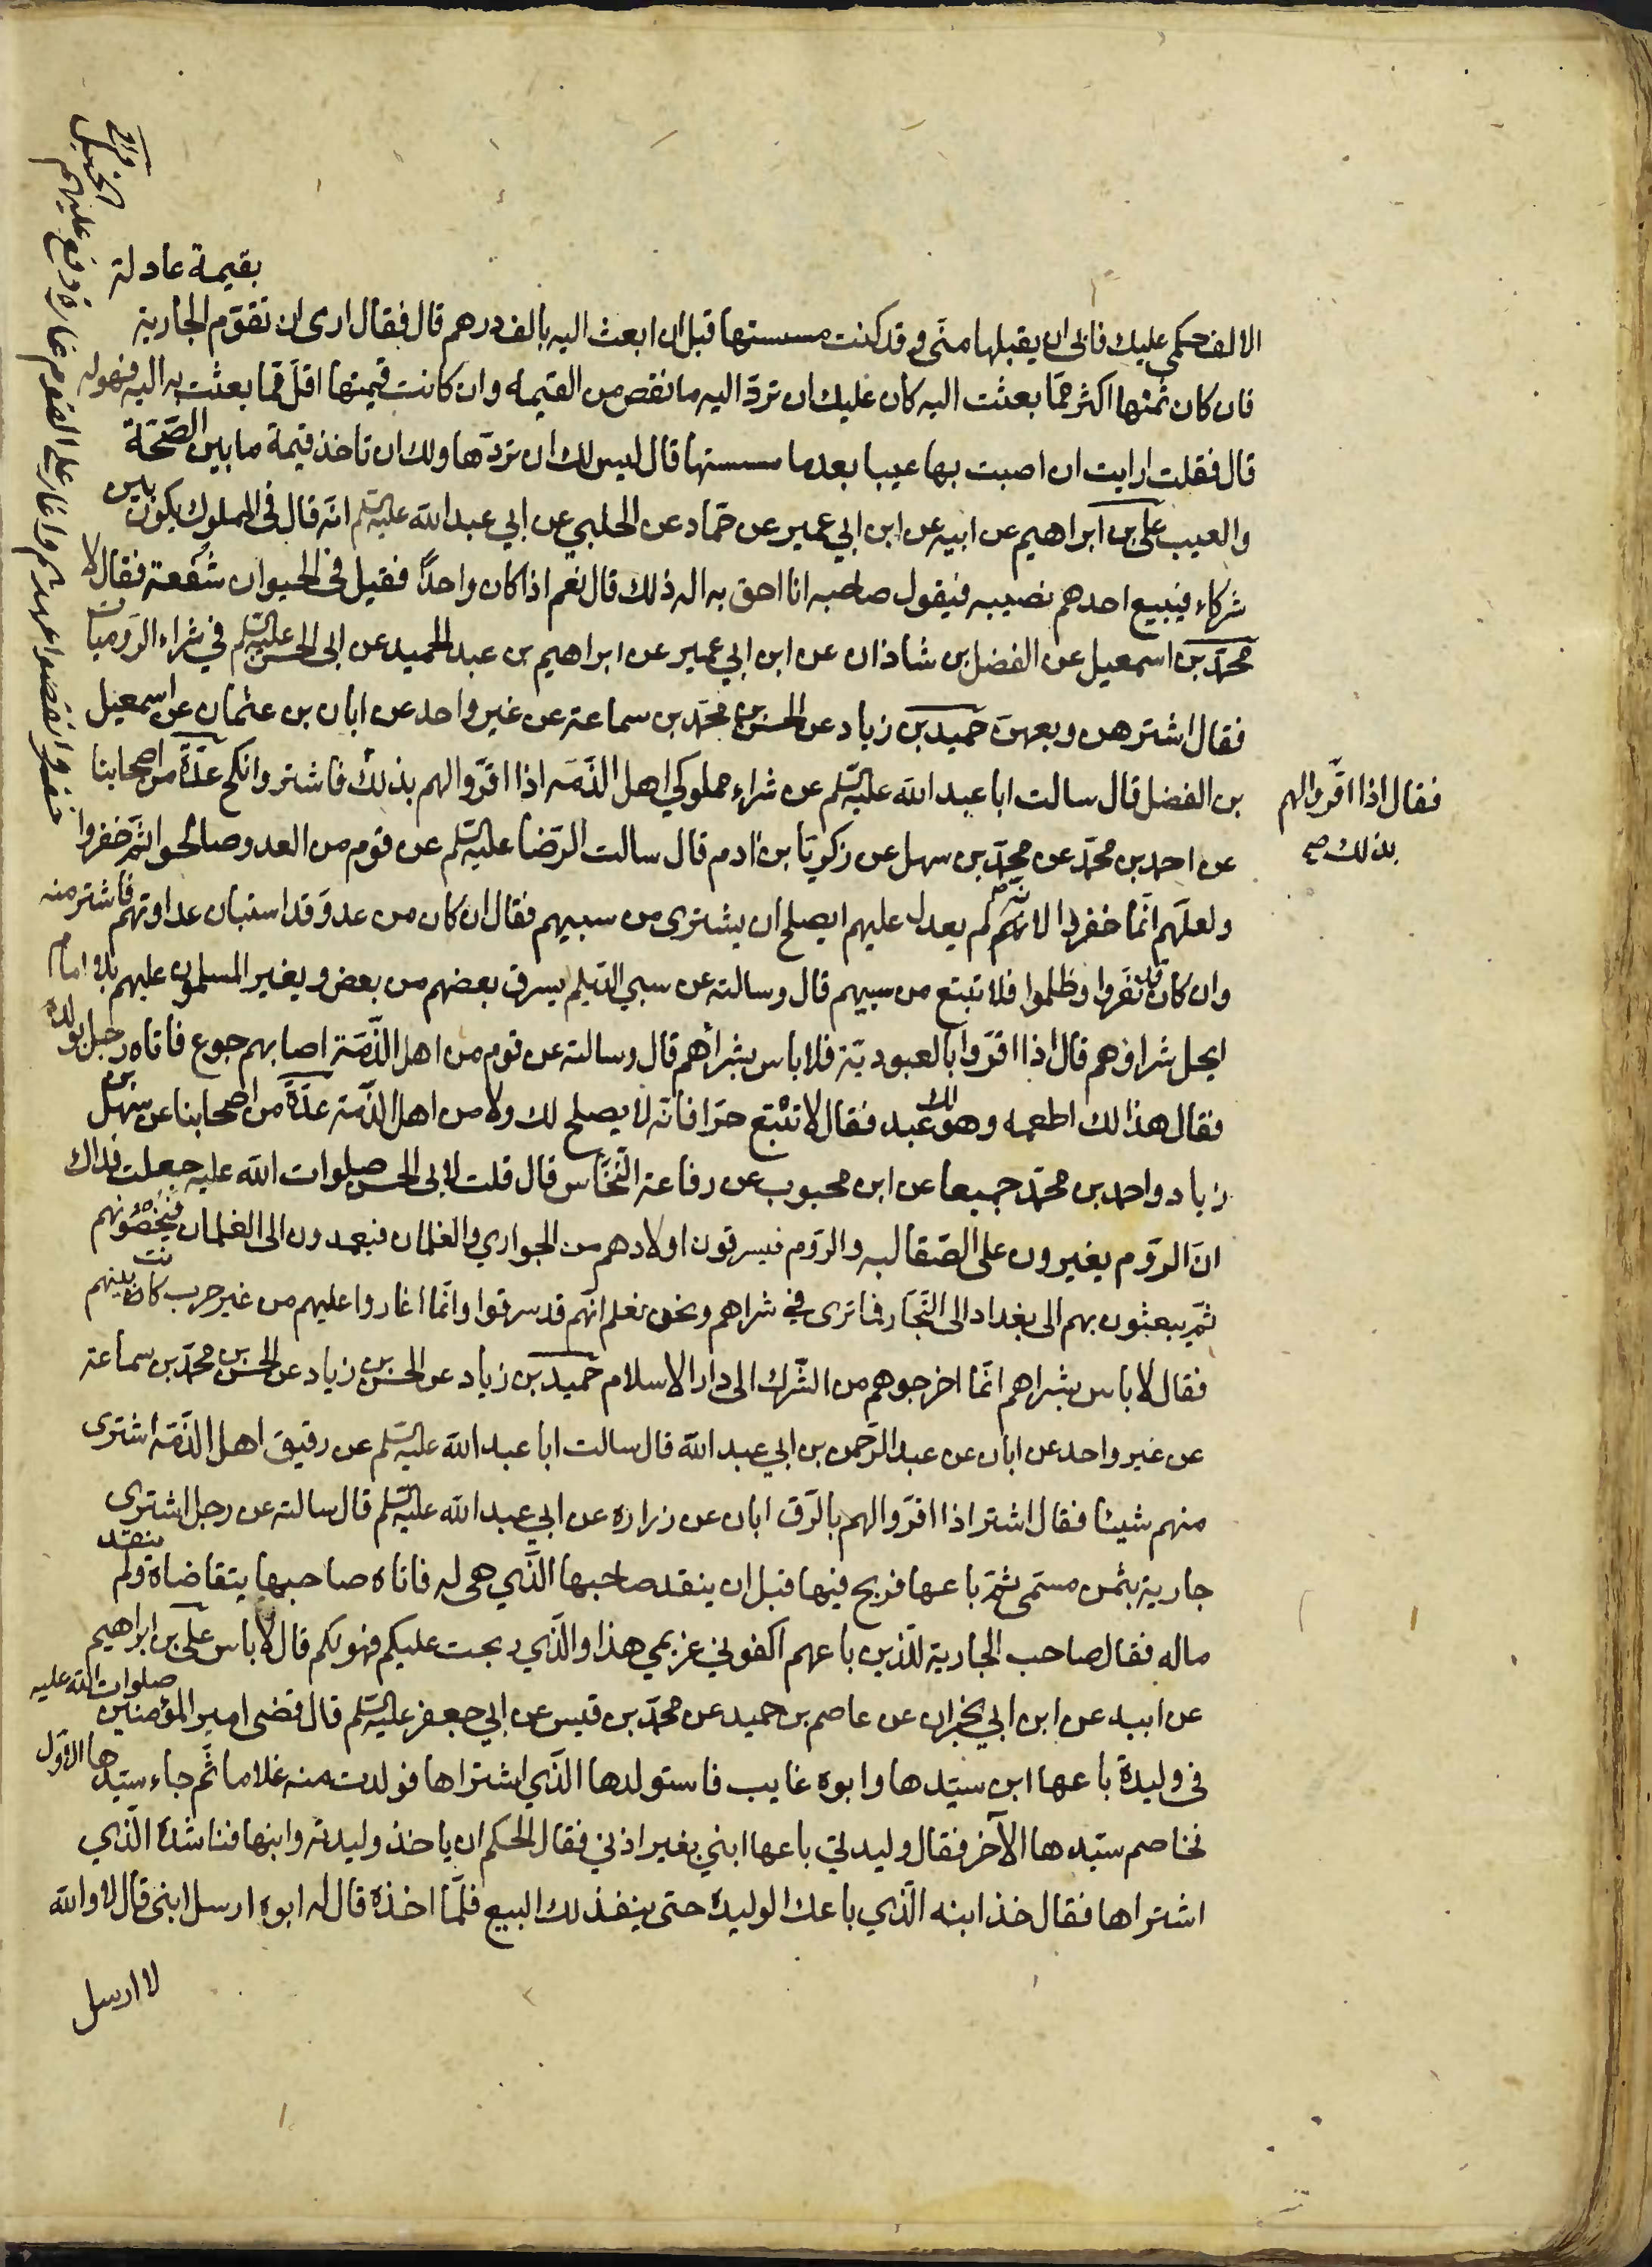 بقيمة عادلة
الالف حكمي عليك فابى ان يقبلها منّي وقد كنت مسستها قبل ان ابعث اليه بالف درهم قال فقال ارى ان تقوّم الجارية
فان كان ثمنها اكثر ممّا بعثت اليه كان عليك ان تردّ اليه ما نقص من القيمه وان كانت قيمتها اقلّ ممّا بعثت به اليه فهو له
قال فقلت ارايت ان اصبت بها عيبا بعد ما مسستها قال ليس لك ان تردّها ولك ان تاخذ قيمة ما بين الصّحّة
والعيب علي بن ابراهيم عن ابيه عن ابن ابي عمير عن حمّاد عن الحلبي عن ابي عبد الله عليه السّلم انّه قال في المملوك يكون بين
شركاء فيبيع احدهم نصيبه فيقول صاحبه انا احق به اله ذلك قال نعم اذا كان واحدًا فقيل في الحيوان شفعة فقال لا
محمّد بن اسمعيل عن الفضل بن شاذان عن ابن ابي عمير عن ابراهيم بن عبد الحميد عن ابى الحسن عليه السّلم في شراء الرّوميات
فقال اشترهن وبعهنّ حميد بن زياد عن الحسن بن محمّد بن سماعة عن غير واحد عن ابان بن عثمان عن اسمعيل
بن الفضل قال سالت ابا عبد الله عليه السّلم عن شراء مملوكي اهل الذّمّه اذا اقرّوا لهم بذلك فاشتر وانكح عدّة من اصحابنا
فقال اذا اقرّوا لهم
بذلك صح
عن احمد بن محمّد عن محمّد بن سهل عن زكريّا بن ادم قال سالت الرّضا عليه السّلم عن قوم من العدو صالحوا ثمّ خفروا
ولعلّهم انّما خفروا لانّهم لم يعدل عليهم ايصلح ان يشترى من سبيهم فقال ان كان من عدوّ قد استبان عداوتهم فاشتر منه
وان كان قد نفروا وظلموا فلا تبتع من سبيهم قال وسالته عن سبي الدّيلم يسرق بعضهم من بعض ويغير المسلمون عليهم بلا امام
ايحل شراؤهم قال اذا اقرّوا بالعبوديّة فلا باس بشرائهم قال وسالته عن قوم من اهل الذّمّة اصابهم جوع فاتاه رجل بولده
فقال هذا لك اطعمه وهو لك عبد فقال لا تبتع حرّا فانّه لا يصلح لك ولا من اهل الذّمّة عدّة من اصحابنا عن سهل بن
زياد واحمد بن محمّد جميعا عن ابن محبوب عن رفاعة النّخّاس قال قلت لابى الحسن صلوات الله عليه جعلت فداك
انّ الرّوم يغيرون على الصّقالبه والرّوم فيسرقون اولادهم من الجواري والغلمان فيعمدون الى الغلمان فيخصونهم
ثمّ يبعثون بهم الى بغداد الى التّجّار فما ترى في شراهم ونحن نعلم انّهم قد سرقوا وانّما اغاروا عليهم من غير حرب كانت بينهم
فقال لا باس بشراهم انّما اخرجوهم من الشّرك الى دار الاسلام حميد بن زياد عن الحسن بن زياد عن الحسن بن محمّد بن سماعة
عن غير واحد عن ابان عن عبد الرّحمن بن ابي عبد الله قال سالت ابا عبد الله عليه السّلم عن رقيق اهل الذّمّه اشترى
منهم شيئا فقال اشتر اذا اقرّوا لهم بالرّق ابان عن زراره عن ابي عبد الله عليه السّلم قال سالته عن رجل اشترى
جارية بثمن مسمّى ثمّ باعها فربح فيها قبل ان ينقد صاحبها الّذي هي له فاتاه صاحبها يتقاضاه ولم ينقد
ماله فقال صاحب الجارية للّذين باعهم اكفوني غريمي هذا والّذي ربحت عليكم فهو لكم قال لا باس علي بن ابراهيم
عن ابيه عن ابن ابي نجران عن عاصم بن حميد عن محمّد بن قيس عن ابي جعفر عليه السّلم قال قضى امير المؤمنين صلوات الله عليه
في وليدة باعها ابن سيّدها وابوه غايب فاستولدها الّذي اشتراها فولدت منه غلاما ثمّ جاء سيّدها الاوّل
فخاصم سيّدها الآخر فقال وليدتي باعها ابني بغير اذني فقال الحكم ان ياخذ وليدته وابنها فناشده الّذي
اشتراها فقال خذ ابنه الّذي باعك الوليدة حتى ينفذ لك البيع فلمّا اخذه قال له ابوه ارسل ابني قال لا والله
لا ارسل